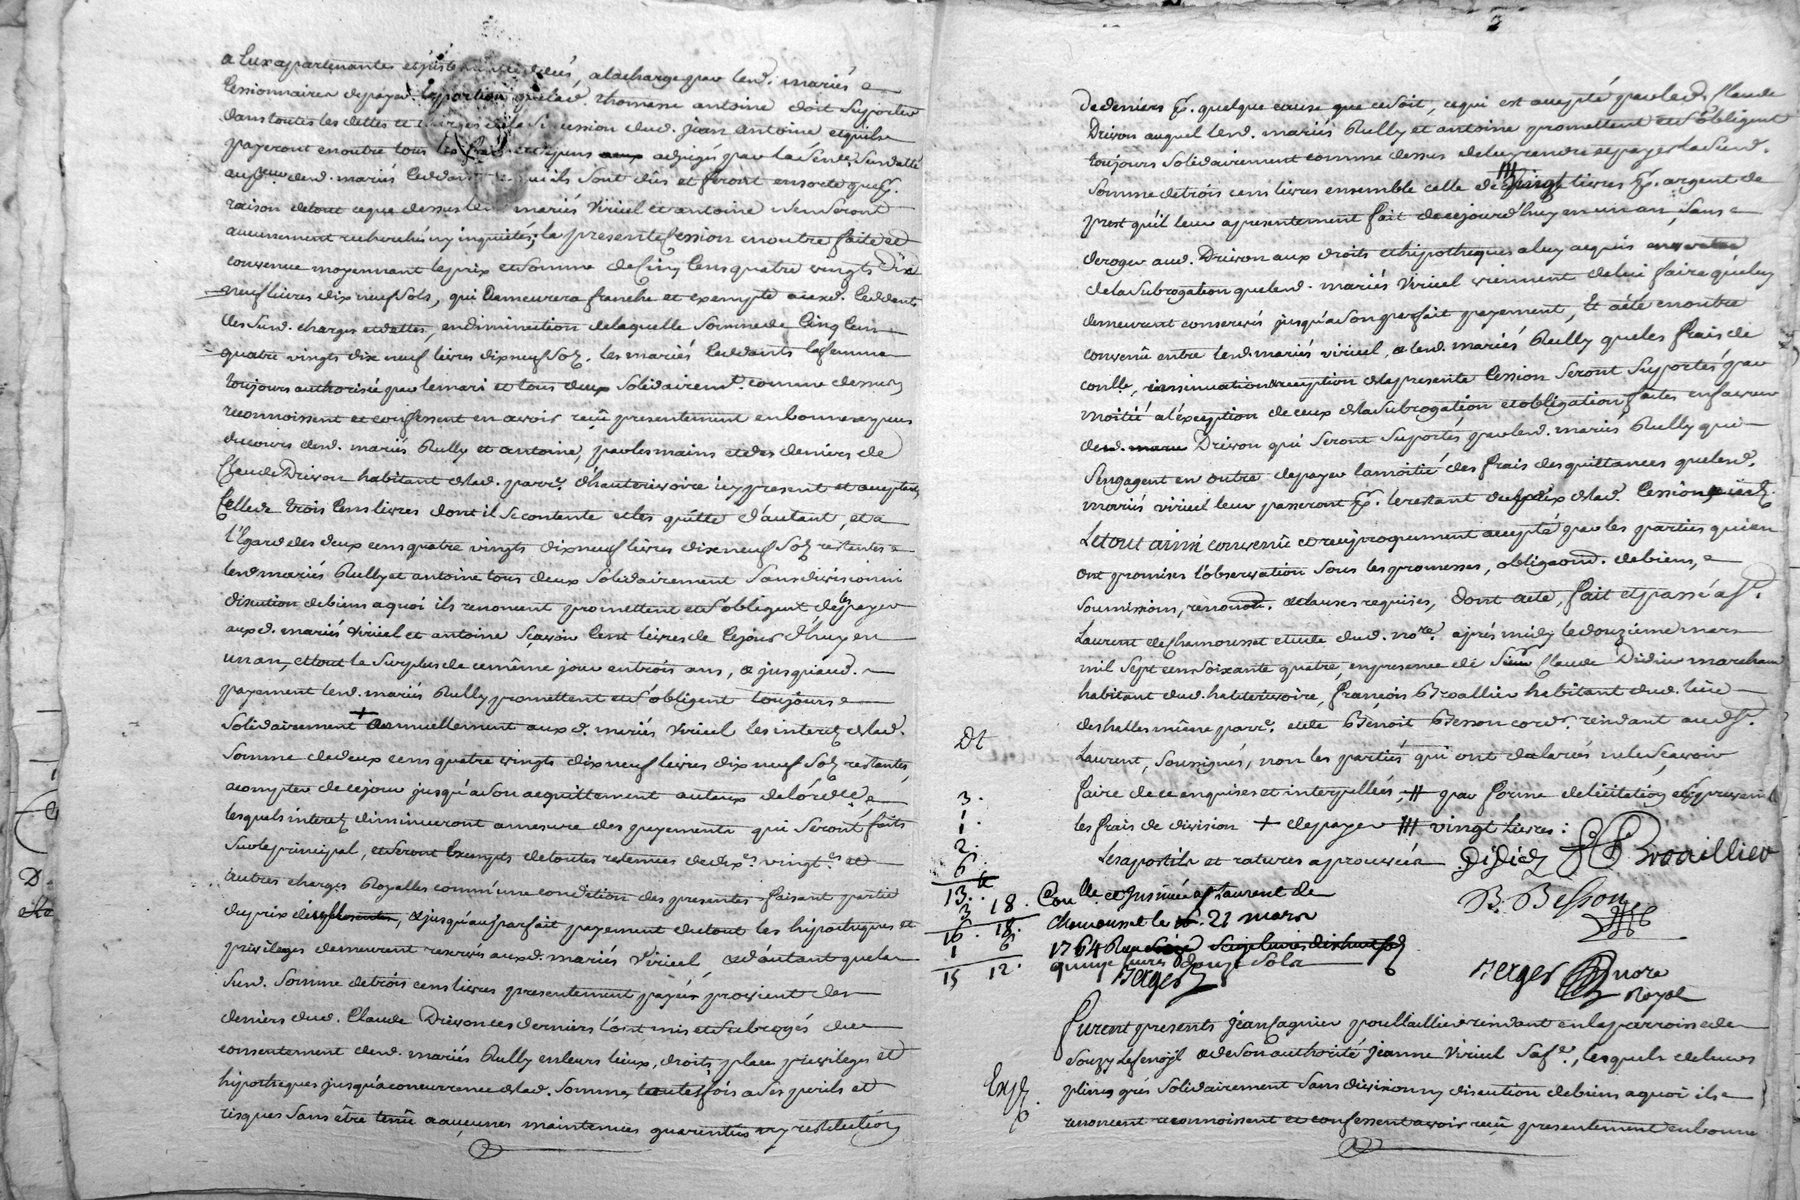 a Eux apartenantes et juste ment dües, a la charge par lesd. mariés
Cessionnaires de payer la portion que lad. thomasse antoine doit Suporter
dans toutes les dettes et charges de la Succession dud. jean antoine et qu'ils
payeront en outre tous les frais et depens adjugés par la Sentce. Susdatté
desd. mariés Ceddants qu'ils Sont dûs et Seront en sorte que pr.
raison de tout ce que dessus les d. mariés Viriuel et antoine n'en Seront
aucunement recherchés ny inquietés, la presente Cession en outre faite et
convenüe moyennant le prix et Somme de Cinq Cens quatre vingts dix
neuf livres dix neuf Sols, qui demeurera franche et exempte auxd. Ceddants
des Susd. charges et dettes, en diminution de laquelle Somme de Cinq Cens
quatre vingts dix neuf livres dix neuf Solz. les mariés Ceddants la femme
toujours authorisée par le mari et tous deux Solidairemt. comme dessus
reconnoissent et confessent en avoir reçû presentement en bonnes especes
du cours desd. mariés Rully et antoine, par les mains et des deniers de
Claude Drivon habitant de lad. parre. d'hauterivoire icy present et acceptant
Celle de trois Cens livres dont il Se contente et les quitte d'autant, et a
l'Egard des deux cens quatre vingts dix neuf livres dix neuf Solz restantes
lesd. mariés Rully et antoine tous deux Solidairement Sans division ni
discution de biens a quoi ils renoncent promettent et S'obligent de les payer
auxd. mariés Viriuel et antoine Sçavoir Cent livres de Ce jour d'huy en
un an, et tout le Surplus de ce même jour en trois ans, & jusqu'aud.
payement lesd. mariés Rully promettent et S'obligent toujours
Solidairement + annuellement aux d. mariés Viriuel les interetz de lad.
Somme de deux cens quatre vingts dix neuf livres dix neuf Solz restantes
a compter de ce jour jusqu'a Son acquittement au taux de l'ordce.
lesquels interetz diminueront a mesure des payements qui Seront faits
Sur le principal, et Seront Exempts de toutes retenues de dixes. vingtes. et
autres charges Royalles comm'une condition des presentes faisant partie
du prix & jusqu'au parfait payement du tout les hipotheques et
privileges demeurent reservés auxd. mariés Viriuel, et d'autant que la
Susd. Somme de trois cens livres presentement payée provient des
deniers dud. Claude Drivon ces derniers l'ont mis et Subrogés du
consentement desd. mariés Rully en leurs lieux, droits, place privileges et
hipotheques jusqu'a concurrence de lad. Somme toutes fois a Ses perils et
risques Sans être tenû a aucunes maintenues garenties ny restitution
3
de deniers pr. quelque cause que ce Soit, ce qui est accepté par led. Claude
Drivon auquel lesd. mariés Rully et antoine promettent et S'obligent
toujours Solidairement comme dessus de luy rendre et payer la Susd.
Somme de trois cens livres ensemble celle de /// vingt livres pr. argent de
prest qu'il leur a presentement fait de ce jourd'huy en un an, Sans
deroger aud. Drivon aux droits et hipotheques a luy acquis
de la Subrogation que lesd. mariés Viriuel viennent de lui faire qui luy
demeurent conservés jusqu'a Son parfait payement, Et a été en outre
convenû entre lesd. mariés viriuel, & lesd. mariés Rully que les frais de
conlle, insinuation & reception de la presente Cession Seront Suportés par
moitié a l'exception de ceux de la Subrogation et obligation faites en faveur
dud. Drivon qui Seront Suportés par lesd. mariés Rully qui
S'engagent en outre de payer la moitié des frais des quittances que lesd.
mariés viriuel leur passeront pr. le restant du prix de lad. Cession
Le tout ainsi convenû et reciproquement accepté par les parties qui en
ont promises l'observation Sous les promesses, obligaond. de biens,
Soumissions, renonond. & clauses requises, dont acte, fait et passé a St.
Laurent de Chamousset etude dud. nore. aprés midy le douzieme mars
mil Sept cens Soixante quatre, en presence de Sieur Claude Didier marchand
habitant dud. hauterivoire, françois Broallier habitant dud. lieu
des halles même parre. et de Benoit Besson cordr. residant aud. St.
Laurent, Soussignés, non les parties qui ont declarés ne le Sçavoir
faire de ce enquises et interpellées, # par forme de licitation
les frais de division + de payer /// vingt livres :
Les apostils et ratures aprouvées Didier Broaillier
B. Besson
Dt
3.
1.
1.
2.
6.
13.
3 18.
16 18.
1 6
15 12.
Conlle. et Insinué a St. Laurent de
chamousset le 21 mars
1764 Reçu Seize livres dix huit Sols
quinze livres Douze Sols
Berger
Berger nore
Royal
Expé.
Furent presents jean Cagnier poullaillier residant en la parroisse de
Souzy & de Son authorité jeanne Viriuel Sa fe., lesquels de leurs
plains grés Solidairement Sans division ny discution de biens a quoi ils
renoncent reconnoissent et confessent avoir reçû presentement en bonne